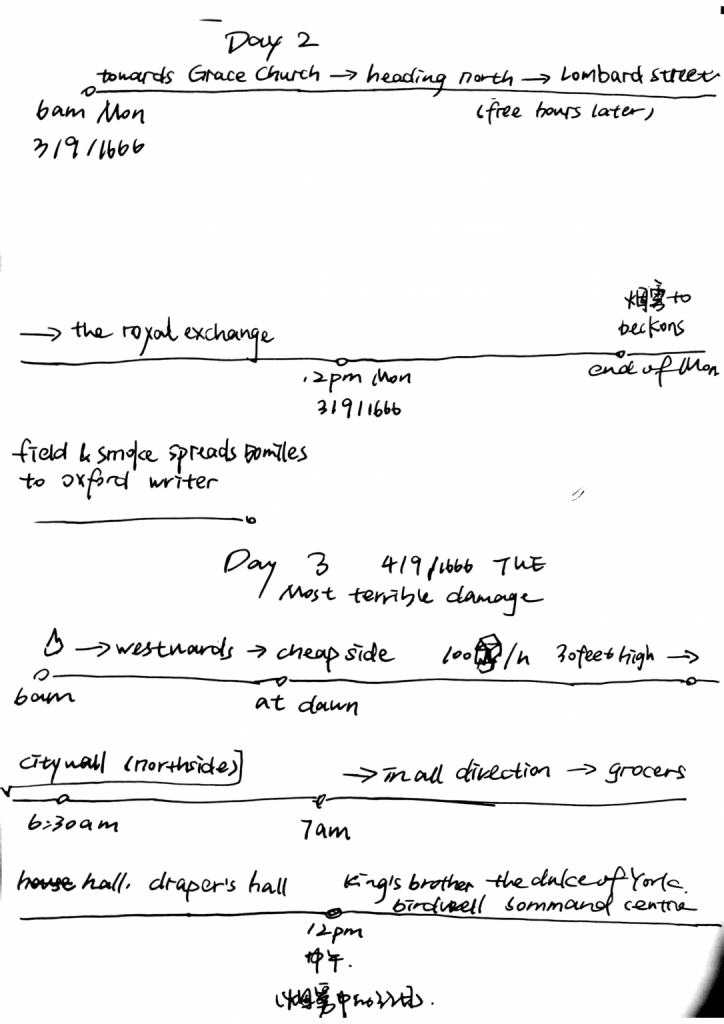 Day 2
towards Grace Church → heading north → Lombard street
6am Mon
(free hours later)
3/9/1666
烟雾 to
beckons
→ the royal exchange
12pm Mon
end of Mon
3/9/1666
field & smoke spreads 50miles
to oxford writer
Day 3 4/9/1666 TUE
Most terrible damage
→ westwards → cheap side 100 /h 30feet high →
6am
at dawn
city wall (northside)
→ in all direction → grocers
6:30am
7am
hall. draper's hall
King's brother the duke of York.
birdwell command centre
12pm
中午.